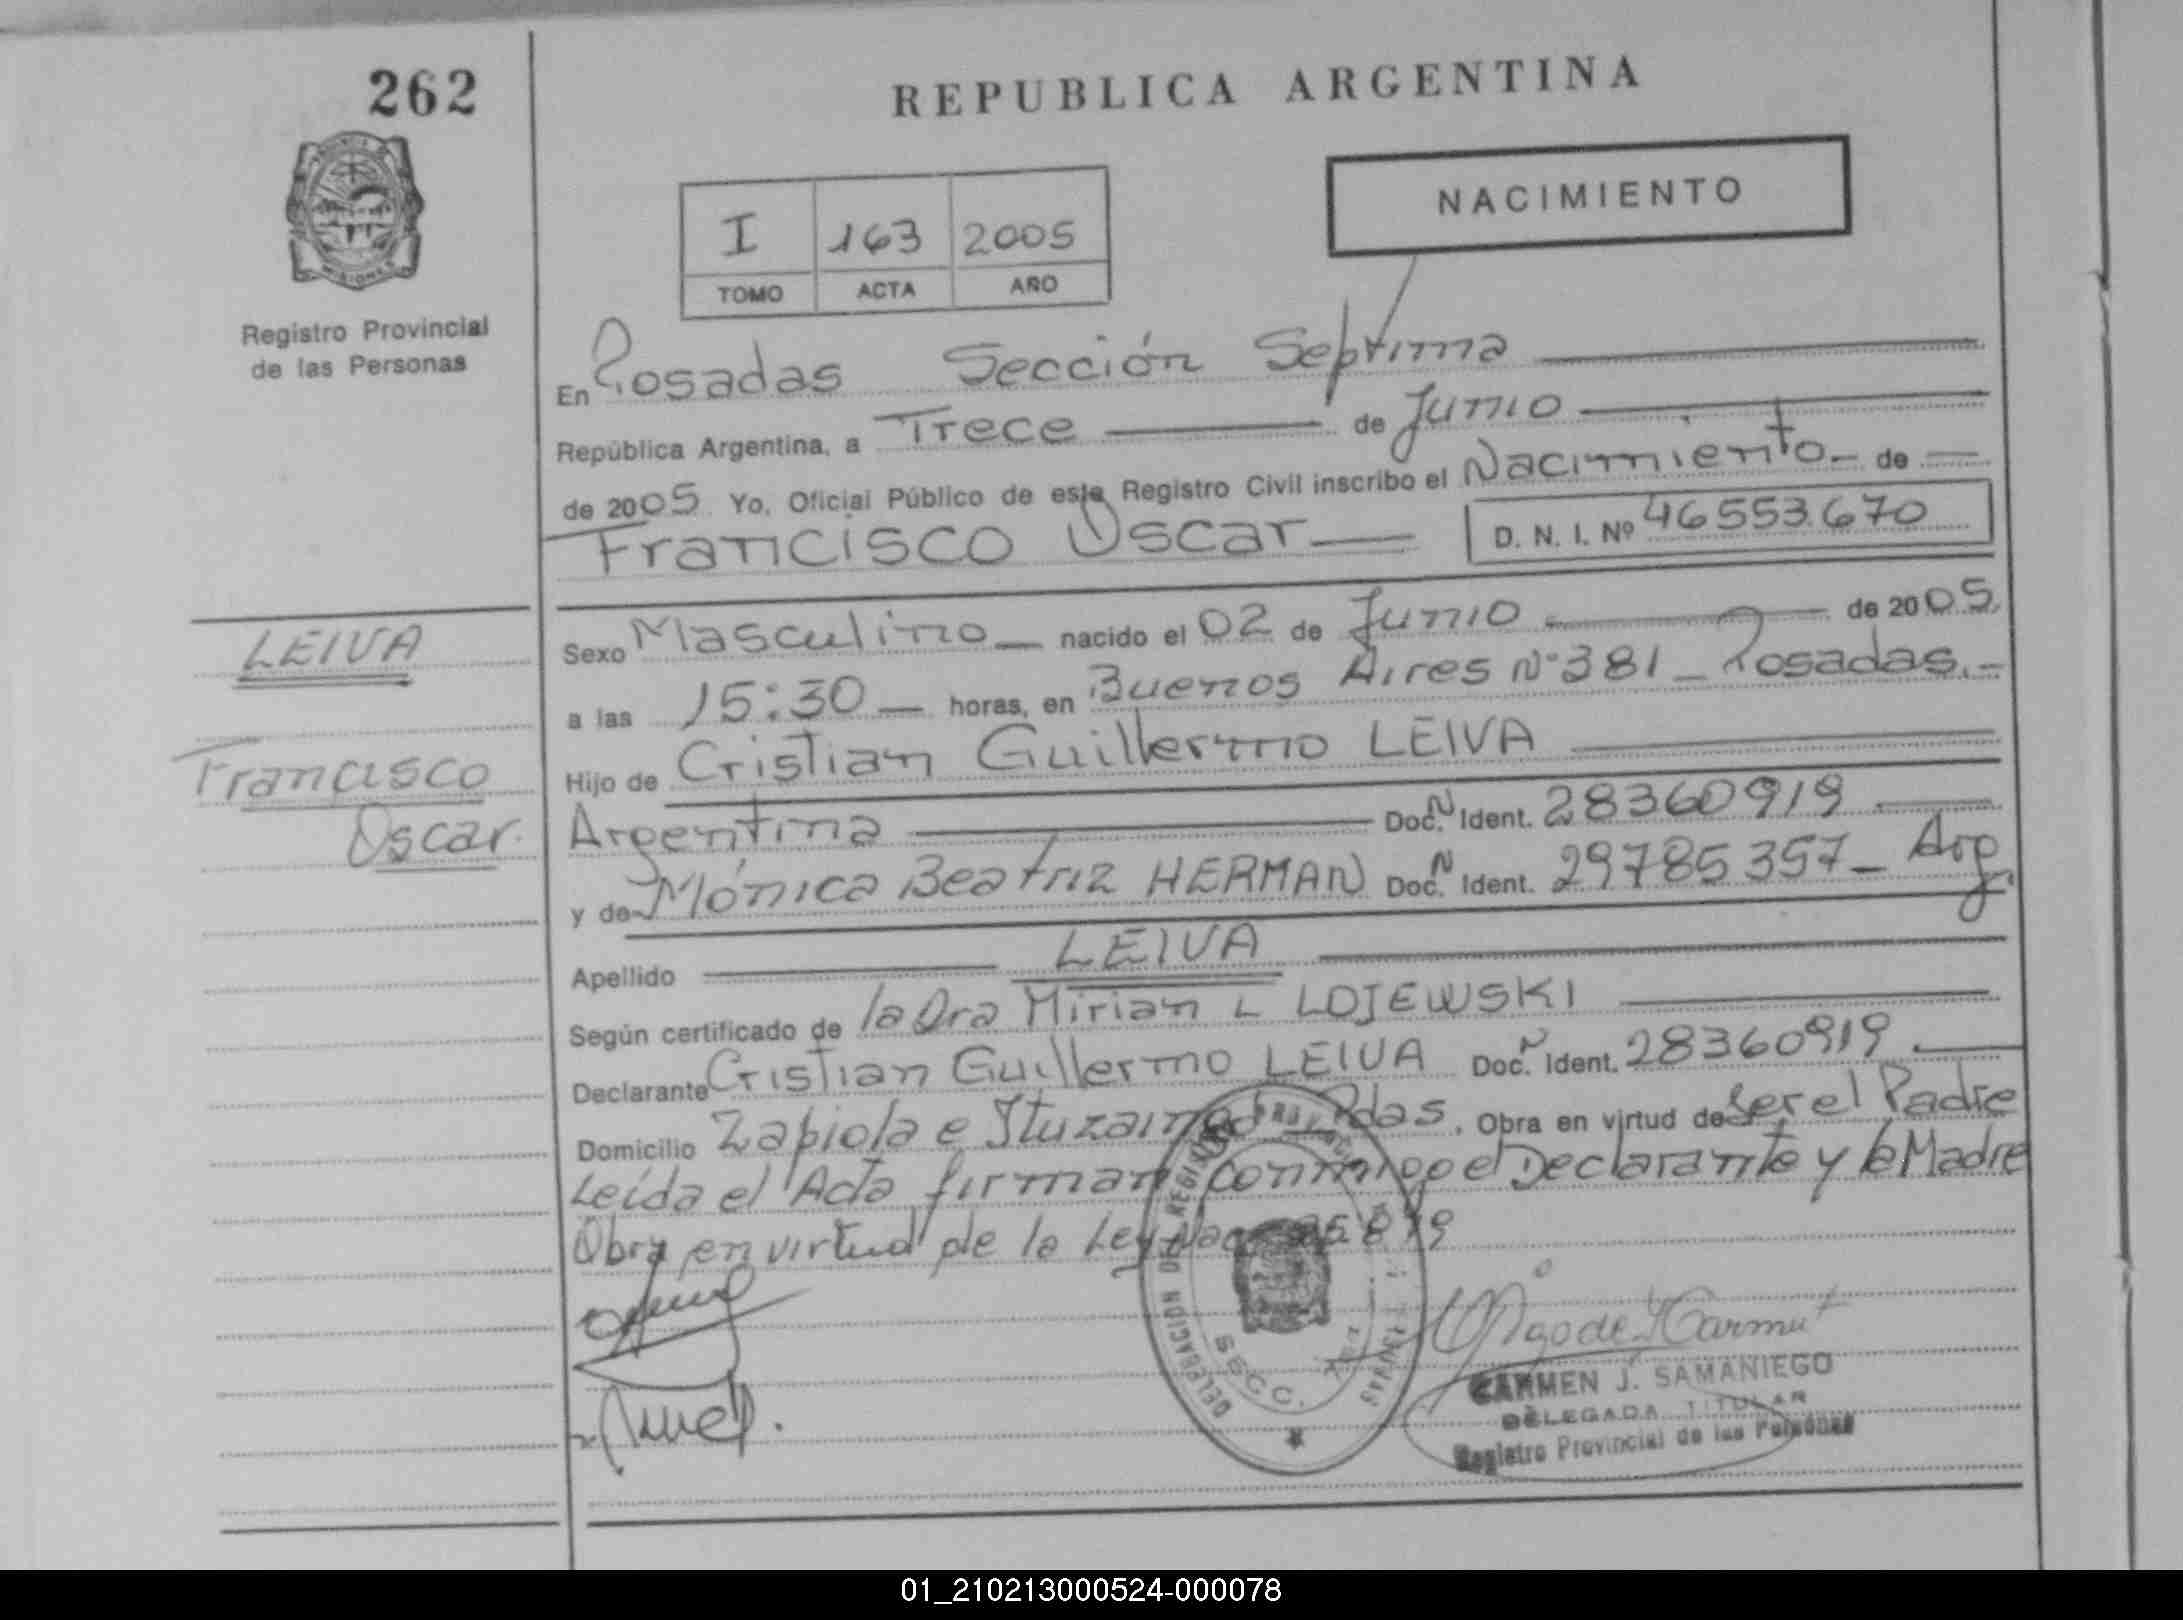 262
REPUBLICA ARGENTINA
MISIONES
Registro Provincial
de las Personas
I 163 2005
TOMO ACTA AÑO
NACIMIENTO
En Posadas Sección Septima
República Argentina, a Trece de Junio
de 2005 Yo, Oficial Público de este Registro Civil inscribo el Nacimiento de
Francisco Oscar D. N. I. Nº 46553.670
LEIVA
Francisco
Oscar.
Sexo Masculino nacido el 02 de Junio de 2005
a las 15:30 horas, en Buenos Aires Nº 381 - Posadas.-
Hijo de Cristian Guillermo LEIVA
Argentina Doc. N Ident. 28360919
y de Mónica Beatriz HERMAN Doc. N Ident. 29785357- Arg.
Apellido LEIVA
Según certificado de la Dra Mirian L LOJEWSKI
Declarante Cristian Guillermo LEIVA Doc. N Ident. 28360919.
Domicilio Zapiola e Ituzaingó - Pdas. Obra en virtud de ser el Padre
Leída el Acta firman conmigo el Declarante y la Madre
Obra en virtud de la Ley Nac
DELEGACION DE REGISTRO PROVINCIAL
SECC.
CARMEN J. SAMANIEGO
DELEGADA TITULAR
Registro Provincial de las Personas
01_210213000524-000078